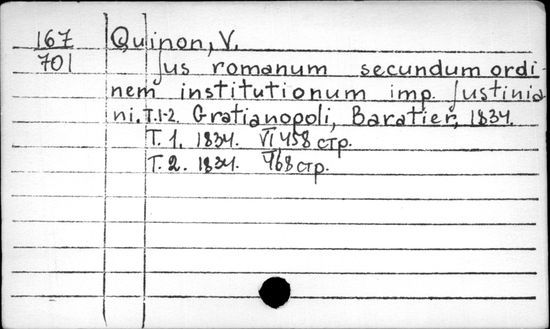 167 Quinon, V.
701 Jus romanum secundum ordi
nem institutionum imp. Justinia
ni. T.1-2. Gratianopoli, Baratier, 1834.
T. 1. 1834. VI 458 стр.
T. 2. 1834. 468 стр.